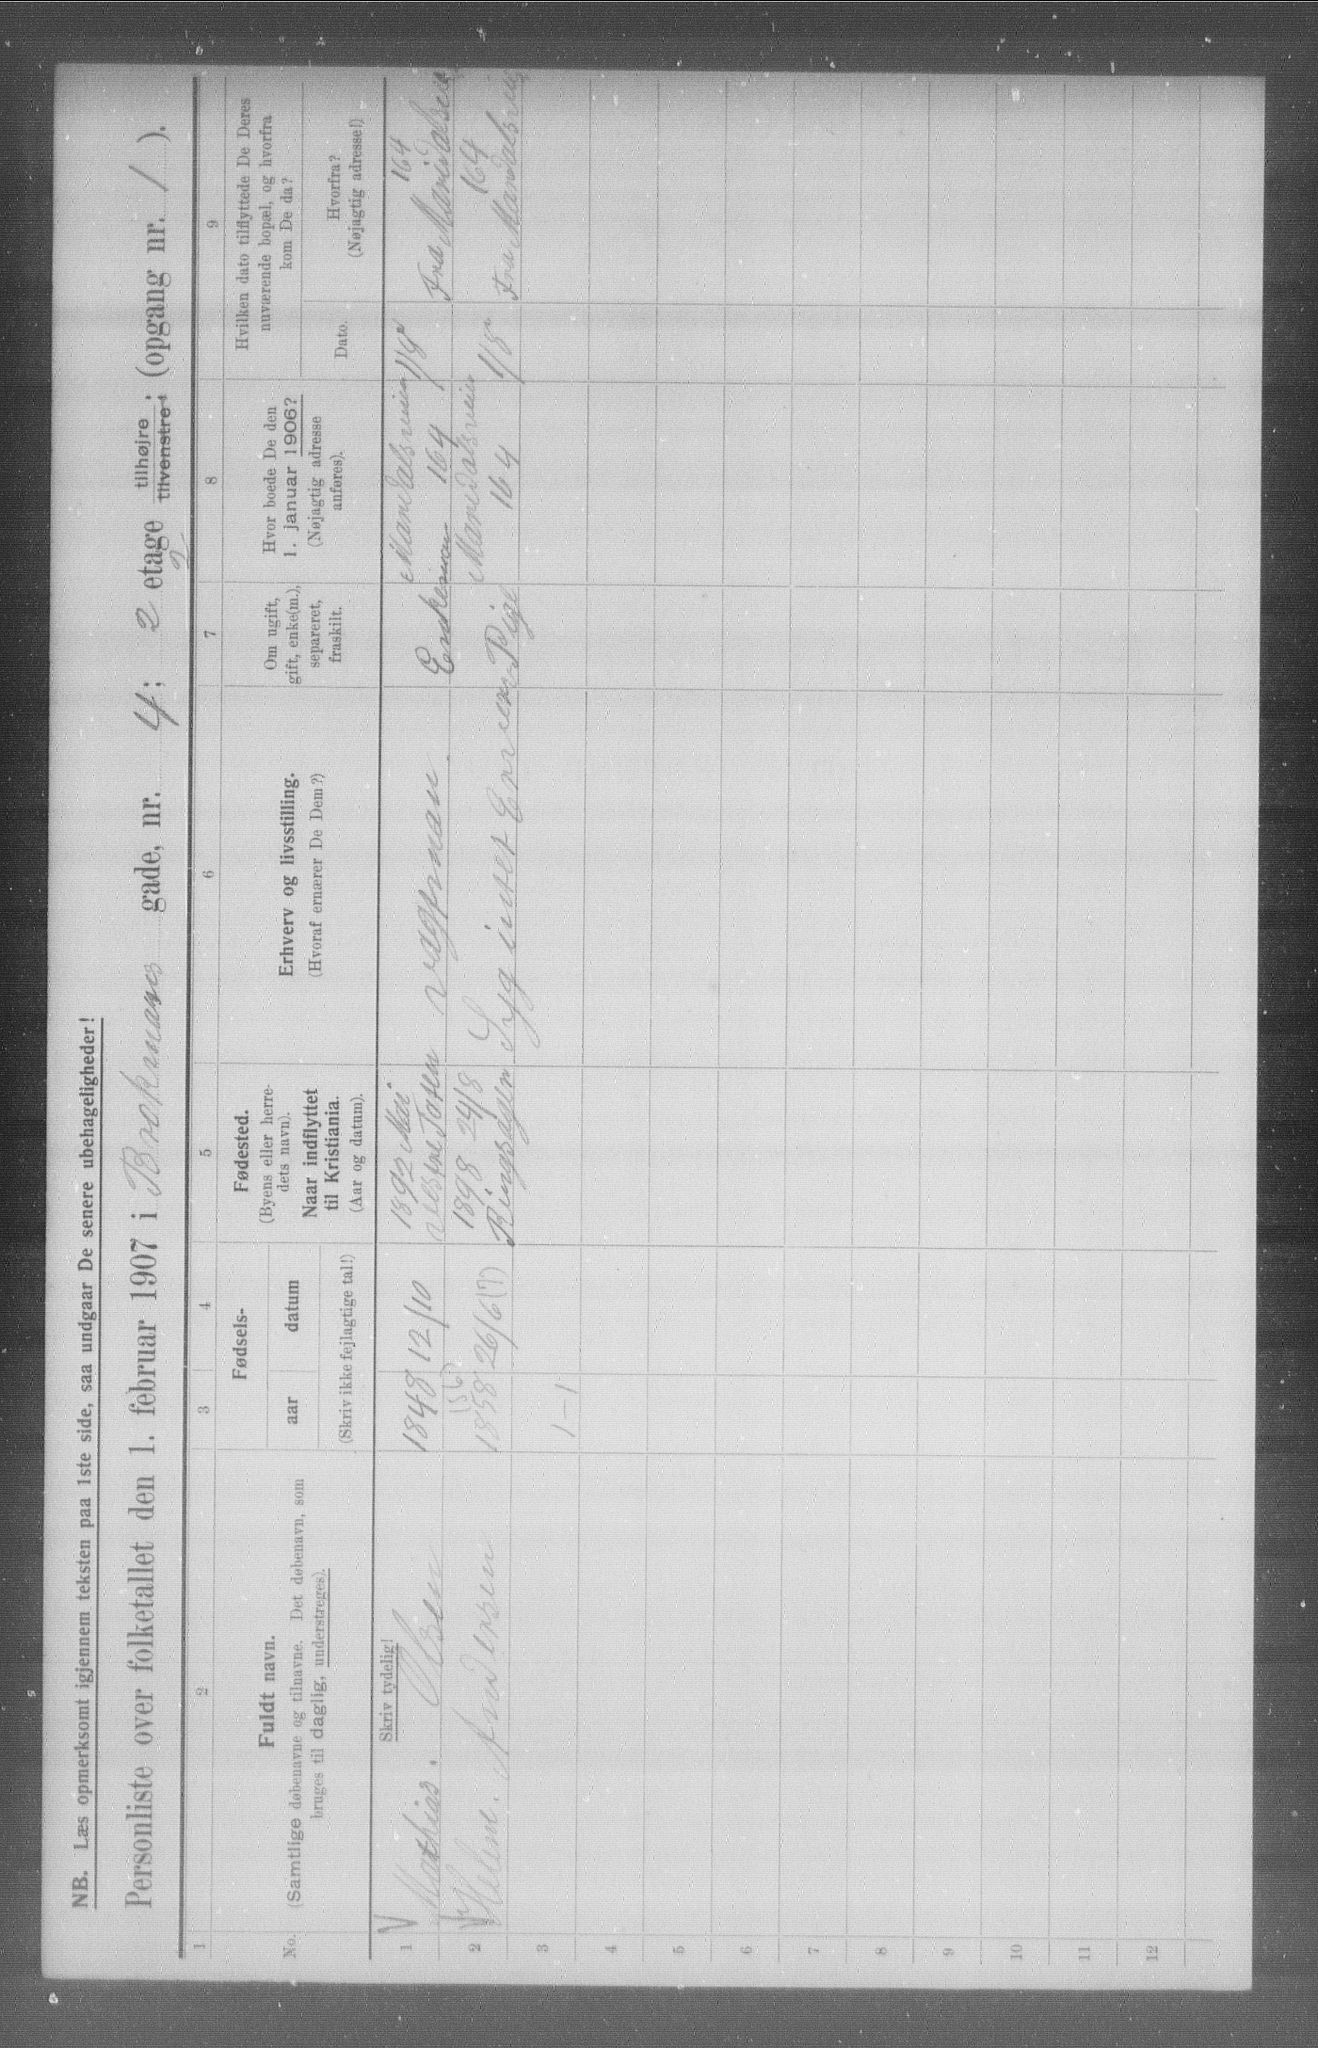 NB. Læs opmerksomt igjennem teksten paa 1ste side, saa undgaar De senere ubehageligheder!
Personliste over folketallet den 1. februar 1907 i gade, nr. 4; 2 etage tilhøjre tilvenstre; (opgang nr. 1).
2
1 2 3 4 5 6 7 8 9
No.
Fuldt navn.
(Samtlige døbenavne og tilnavne. Det døbenavn, som
bruges til daglig, understreges).
Fødsels-
aar datum
(Skriv ikke fejlagtige tal!)
Fødested.
(Byens eller herre-
dets navn).
Naar indflyttet
til Kristiania.
(Aar og datum).
Erhverv og livsstilling.
(Hvoraf ernærer De Dem?)
Om ugift,
gift, enke(m.),
separeret,
fraskilt.
Hvor boede De den
1. januar 1906?
(Nøjagtig adresse
anføres).
Hvilken dato tilflyttede De Deres
nuværende bopæl, og hvorfra
kom De da?
Dato.
Hvorfra?
(Nøjagtig adresse!)
Skriv tydelig!
1 V Mathias. Olsen 1848 12/10 1892 Mai Vestre Toten Vægtman Enkeman Maridalsveien 164 1/8 Fra Maridalsvei 164
2 V Helene. Andersen 1858 (56) 26/6 (7) 1898 24/8 Ringsager Syg intet Erverv Pige Maridalsveien 164 1/8 Fra Maridalsvei 164
3 1-1
4
5
6
7
8
9
10
11
12